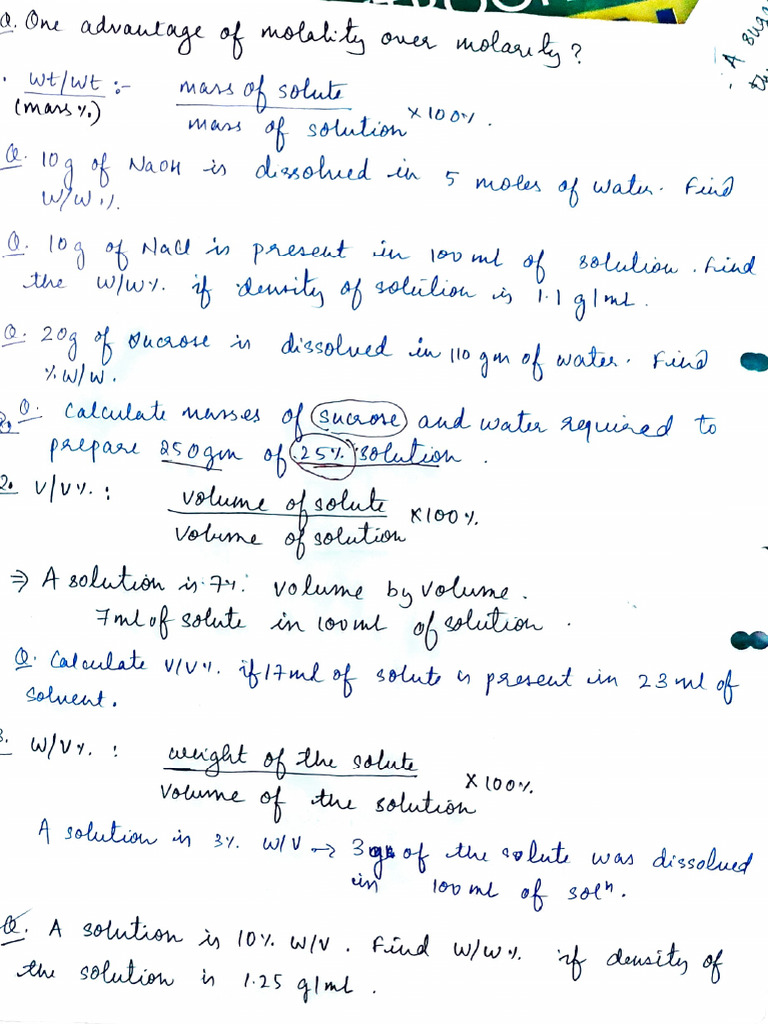 Q. One advantage of molality over molarity?
. wt/wt :- mass of solute
(mass %) mass of solution ×100%.
Q. 10g of NaOH is dissolved in 5 moles of water. Find
W/W%.
Q. 10g of NaCl is present in 100 ml of solution. Find
the W/W% if density of solution is 1.1 g/ml.
Q. 20g of sucrose is dissolved in 110 gm of water. Find
% W/W.
Q. Calculate masses of sucrose and water required to
prepare 250gm of 25% solution.
2. V/V% : volume of solute
volume of solution ×100%
⇒ A solution is 7% volume by volume.
7ml of solute in 100ml of solution.
Q. Calculate V/V% if 17ml of solute is present in 23 ml of
solvent.
3. W/V% : weight of the solute
volume of the solution ×100%
A solution is 3% W/V → 3g of the solute was dissolved
in 100 ml of solⁿ.
Q. A solution is 10% W/V. Find W/W% if density of
the solution is 1.25 g/ml.